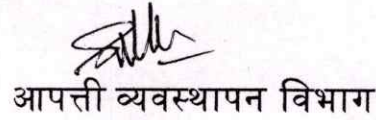 आपत्ती व्यवस्थापन विभाग